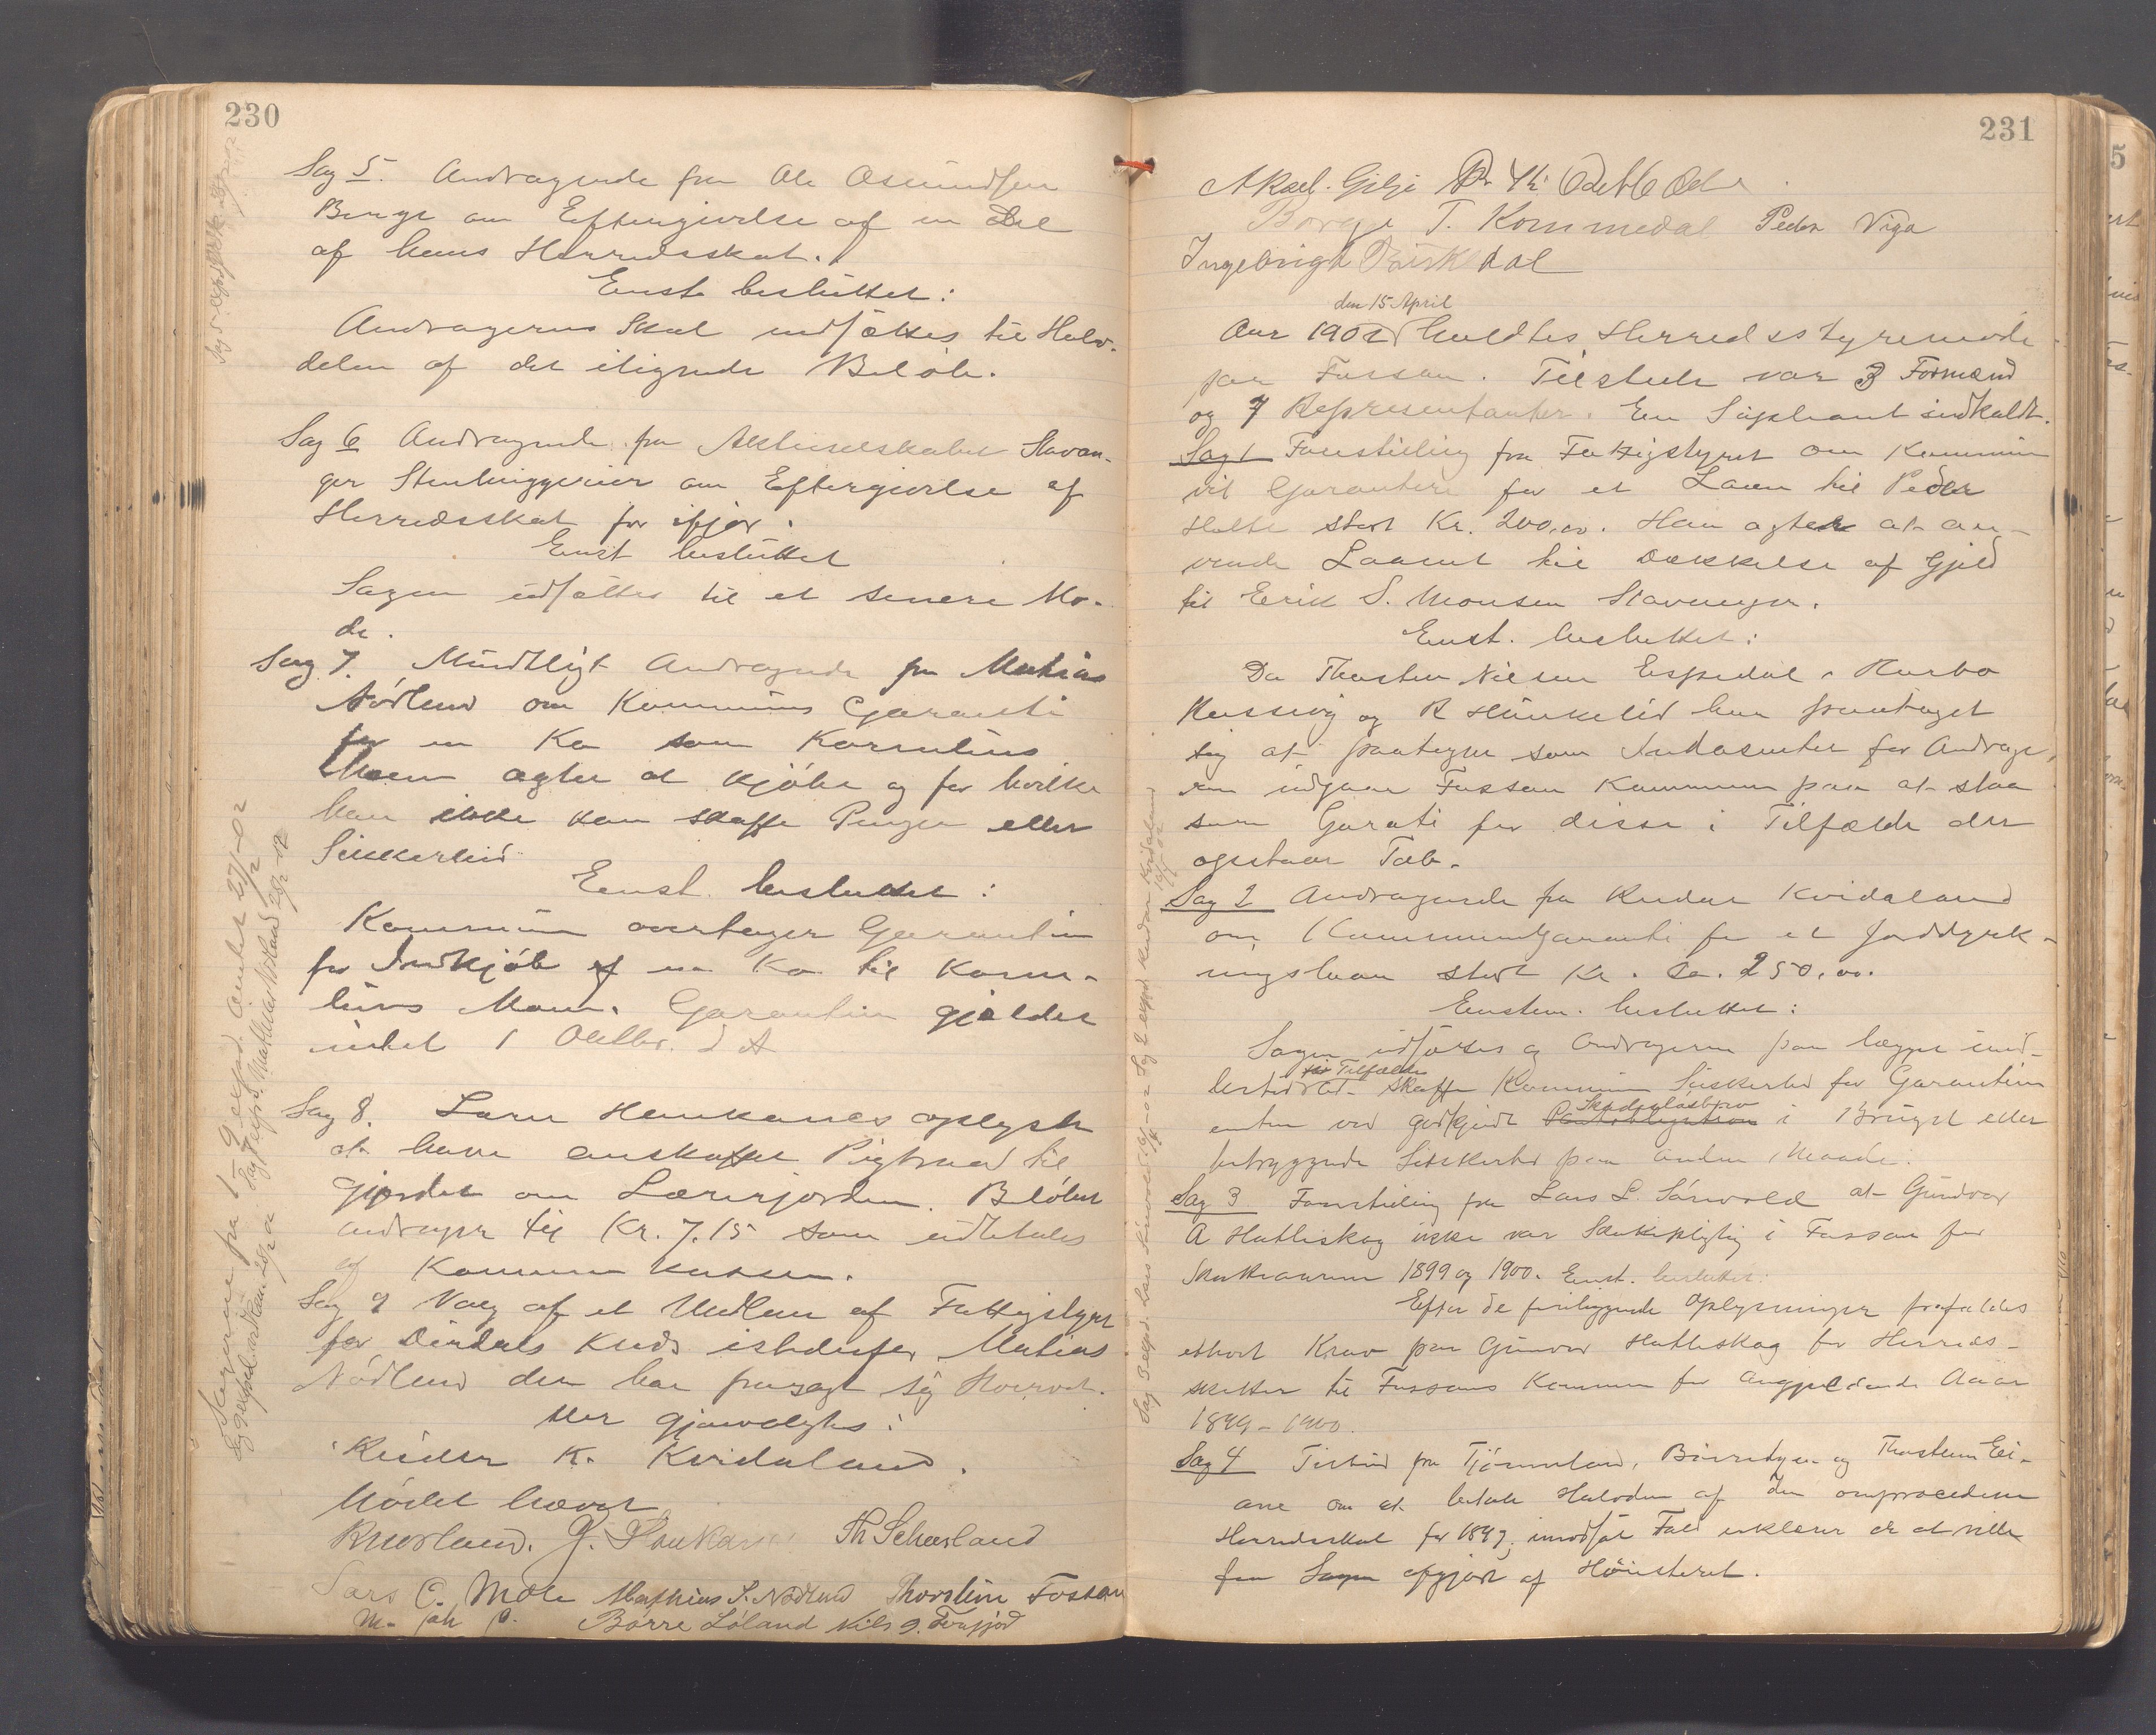 230
Sag 5. Andragende fra Ole Asmundsen
Berge om Eftergivelse af en Del
af hans Herredsskat.
Enst. besluttet:
Andragerens Skat nedsættes til Halv-
delen af det ilignede Beløb.
Sag 6 Andragende fra Aktieselskabet Stavan-
ger Stenhuggerier om Eftergivelse af
Herredsskat for ifjor.
Enst besluttet
Sagen udsættes til et senere Mø-
de.
Sag 7. Mundtligt Andragende fra Mathias
Nødland om Kommunens Garanti
for en Ko som Kornelius
Moen agter at kjøbe og for hvilke
han ikke kan skaffe Penger eller
Sikkerhed
Enst. besluttet:
Kommunen overtager Garantien
for Indkjøb af en Ko til Korne-
lius Moen. Garantien gjælder
indtil 1 Oktbr. d A
Sag 8. Lærer Haukanes oplyste
at have anskaffet Pigtraad til
Gjærdet om Lærerjorden. Beløbet
andrager til Kr. 7.15 som udbetales
af Kommunekassen.
Sag 9 Valg af et Medlem af Fattigstyret
for Dirdals Kreds istedenfor Mathias
Nødland den har frasagt sig Hvervet.
Her gjenvalgtes:
Reidar K. Kvidaland.
Mødet hævet
R Norland. J. Haukanes Th Scheesland
Lars O. Mæle Mathias S. Nødland Thorstein Fossan
Børre Løland Nils J. Frafjord
231
Aksel Gilje
Børge T. Kommedal Peder Viga
Ingebrigt Birkedal
den 15 April
Aar 1902 holdtes Herredsstyremøde
paa Fossan. Tilstede var 3 Formænd
og 7 Representanter. En Suppleant indkaldt.
Sag 1 Forestilling fra Fattigstyret om Kommunen
vil Garantere for et Laan til Peder
Holte stort Kr. 200,00. Han agter at an-
vende Laanet til Dækkelse af Gjeld
til Erik S. Monsen Stavanger.
Enst. besluttet:
Da Thorsten Nilsen Espedal,
og R Hunkelid har paataget
sig at paategne som Endosenter for Andrage-
ren indgaar Fossan Kommune paa at staa
som Garati for disse i Tilfælde der
opstaar Tab.
Sag 2 Andragende fra Reidar Kvidaland
om Kommunegaranti for et Jorddyrk-
ningslaan stort Kr. Ca. 250,00.
Enstem. besluttet:
Sagen udsættes og Andrageren paa lægges imid-
lertid for Tilfælde at skaffe Kommunen Sikkerhed for Garantien
enten ved godkjendt Pantobligation Skadesløsbrev i Bruget eller
betryggende Sikkerhed paa anden Maade.
Sag 3 Forestilling fra Lars L. Sørvold at Gundvar
A Hatleskog ikke var Skattepligtig i Fossan for
Skatteaarene 1899 og 1900. Enst. besluttet:
Efter de foreliggende Oplysninger frafaldes
ethvert Krav paa Gunvor Hatleskog for Herreds-
skatter til Fossans Kommune for angjældende Aaar
1899 - 1900.
Sag 4 Tilbud fra Tjørneland, og Thorstein Ei-
ane om at betale Halvdelen af den omprocederede
Herredsskat for 1897, imodsat Fald erklærer de at ville
faa Sagen afgjort af Høiesteret.